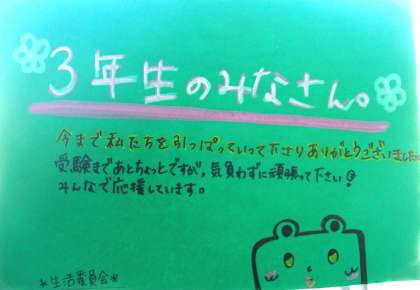 3年生のみなさん。
今まで私たちを引っぱっていって下さりありがとうございました。
受験まであとちょっとですが、気負わずに頑張って下さい!
みんなで応援しています。
*生活委員会*